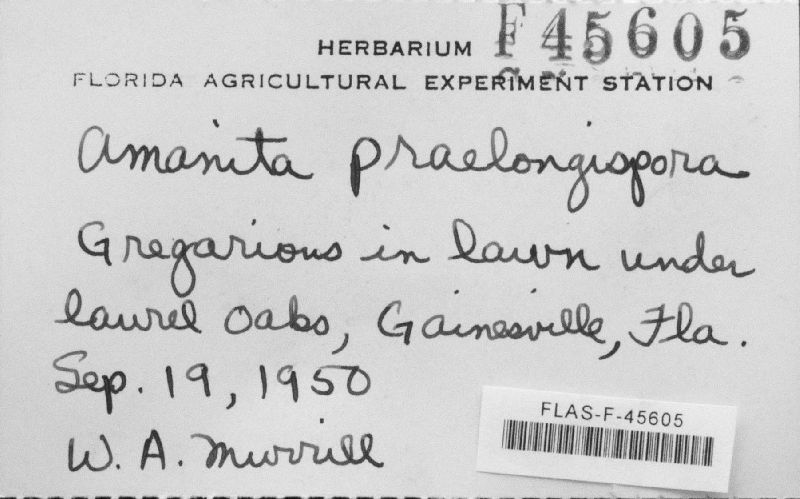 HERBARIUM F45605
FLORIDA AGRICULTURAL EXPERIMENT STATION
Amanita praelongispora
Gregarious in lawn under
laurel oaks, Gainesville, Fla.
Sep. 19, 1950
W. A. Murrill
FLAS-F-45605